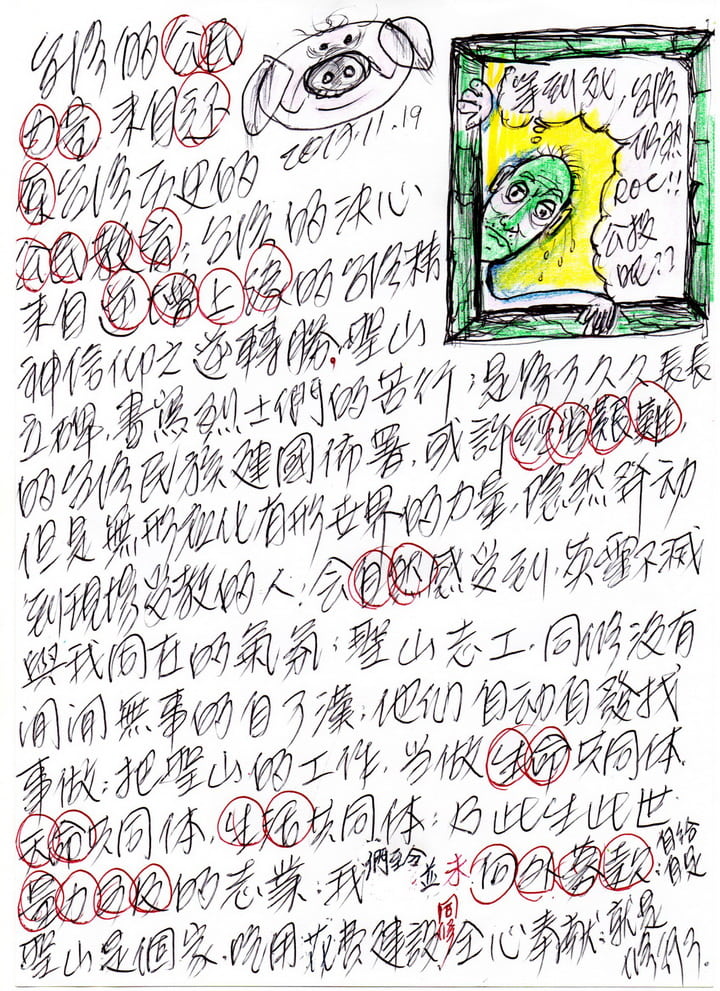 台灣的公民
力量 來自還
2017.11.19
原台灣歷史的
公民教育；台灣的決心
來自 的台灣精
神信仰之逆轉勝。聖山
立碑，書寫烈士們的苦行；是為了久久長長
的台灣民族建國佈署，或許經營艱難，
但是無形催化有形世界的力量，隱然發动
到現場受教的人；会自然感受到，英靈不滅
與我同在的氣氛；聖山志工，同修沒有
閒閒無事的自了漢；他们自动自發找
事做；把聖山的工作，当做生命共同体，
天命共同体，生活共同体；乃此生此世
量力而及的志業；我們至今並未向外募款；自給自足
聖山是個家，吃用花費建設，同修全心奉献；就是修行。
等到死，台灣仍然ROC!! 公投呢??